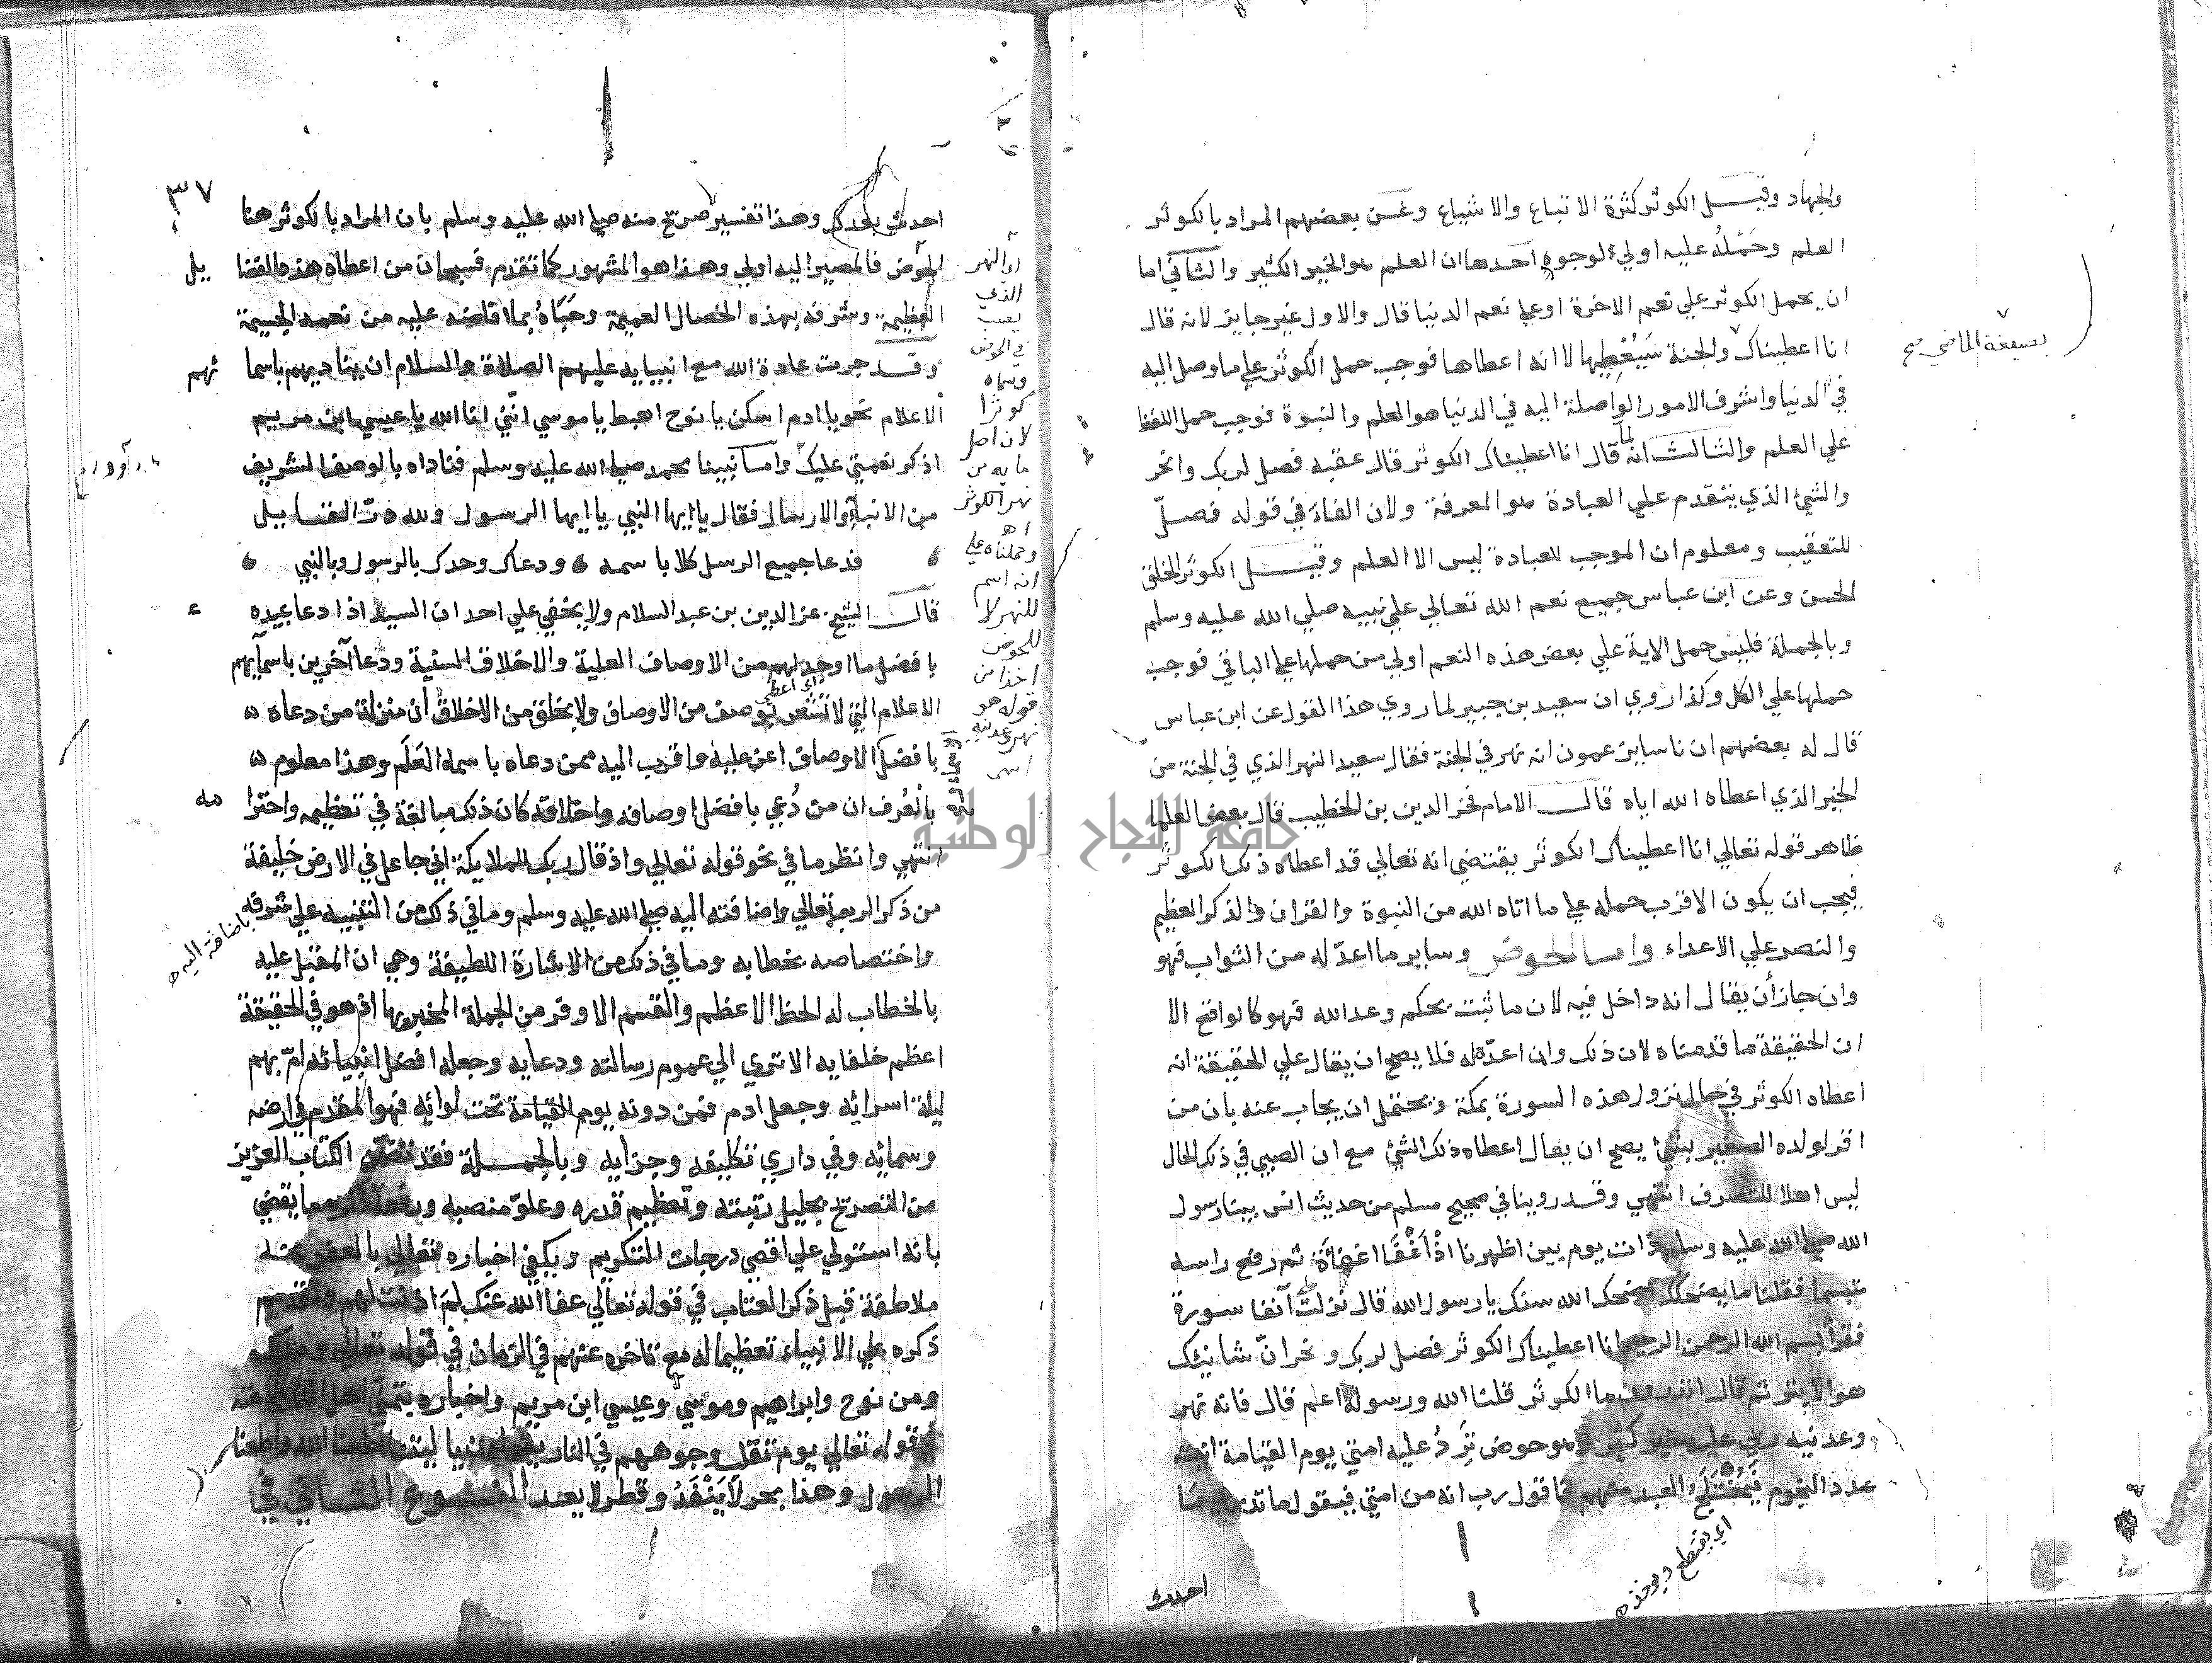 والجهاد وقيل الكوثر كثرة الاتباع والاشياع وعن بعضهم المراد بالكوثر
العلم وحَمْلُه عليه اولي لوجوه احدها ان العلم هو الخير الكثير والثاني اما
ان يحمل الكوثر علي نعم الاخرة او علي نعم الدنيا قال والاول غير جايز لانه قال
انا اعطيناك والجنة سَيُعْطِيها لا انه اعطاها فوجب حمل الكوثر علي ما وصل اليه
في الدنيا واشرف الامور الواصلة اليه في الدنيا هو العلم والنبوة فوجب حمل اللفظ
علي العلم والثالث انه لما قال انا اعطيناك الكوثر قال عقبه فصل لربك وانحر
والشئ الذي يتقدم علي العبادة هو المعرفة ولان الفاءَ في قوله فصلّ
للتعقيب ومعلوم ان الموجب للعبادة ليس الا العلم وقيل الكوثر الخلق
الحسن وعن ابن عباس جميع نعم الله تعالي علي نبيه صلي الله عليه وسلم
وبالجملة فليس حمل الاية علي بعض هذه النعم اولي من حملها علي الباقي فوجب
حملها علي الكل وكذا روي ان سعيد بن جبير لما روي هذا القول عن ابن عباس
قال له بعضهم ان ناسا يزعمون انه نهر في الجنة فقال سعيد النهر الذي في الجنة من
الخير الذي اعطاه الله اياه قال الامام فخر الدين بن الخطيب قال بعض العلما
ظاهر قوله تعالي انا اعطيناك الكوثر يقتضي انه تعالي قد اعطاه ذلك الكوثر
فيجب ان يكون الاقرب حمله علي ما اتاه الله من النبوة والقران والذكر العظيم
والنصر علي الاعداء واما الحوض وساير ما اعدّ له من الثواب فهو
وان جاز أن يقال انه داخل فيه لان ما ثبت بحكم وعد الله فهو كالواقع الا
ان الحقيقة ما قدمناه لان ذلك وان اعدّ له فلا يصح ان يقال علي الحقيقة انه
اعطاه الكوثر في حال نزول هذه السورة بمكة ويحتمل ان يجاب عنه بان من
اقر لولده الصغير بشئ يصح ان يقال اعطاه ذلك الشئ مع ان الصبي في ذلك الحال
ليس اهلا للتصرف انتهي وقد روينا في صحيح مسلم من حديث انس بينا رسول
الله صلي الله عليه وسلم ذات يوم بين اظهرنا اذْ أَغْفَا اغفاءَة ثم رفع راسه
متبسما فقلنا ما يضحكك اضحك الله سنك يا رسول الله قال نزلت علي آنفا سورة
فقرأ بسم الله الرحمن الرحيم انا اعطيناك الكوثر فصل لربك وانحر انّ شانئك
هو الابتر ثم قال اتدرون ما الكوثر قلنا الله ورسوله اعلم قال فانه نهر
وعدنيه ربي عليه خير كثير وهو حوض تَرِدُ عليه امتي يوم القيامة انيته
عدد النجوم فَيُخْتَلَجُ العبد منهم فاقول رب انه من امتي فيقول ما تدري ما
اي يقتطع ويوخذ
احدث
بصيغة الماضي صح
٣٧
احدث بعدك وهذا تفسير صريح منه صلي الله عليه وسلم بان المراد بالكوثر هنا
الحوض فالمصير اليه اولي وهذا هو المشهور كما تقدم فسبحان من اعطاه هذه الفضا يل
العظيمة وشرفه بهذه الخصال العميمة وحَبَاهُ بما افاضه عليه من نعمه الجسيمة
وقد جرت عادة الله مع انبيايه عليهم الصلاة والسلام ان يناديهم باسما ئهم
الاعلام نحو يا ادم اسكن يا نوح اهبط يا موسي انّني انا الله يا عيسي ابن مريم
اذكر نعمتي عليك واما نبينا محمد صلي الله عليه وسلم فناداه بالوصف الشريف
من الانباء والارسال فقال يا ايها النبي يا ايها الرسول ولله درّ القايل
فدعا جميع الرسل كلا باسمه ودعاك وحدك بالرسول وبالنبي
قال الشيخ عز الدين بن عبد السلام ولا يخفي علي احد ان السيد اذا دعا عبيده
بافضل ما اوجد لهم من الاوصاف العلية والاخلاق السنية ودعا آخرين باسمآيهم
اي اعطي
الاعلام التي لا تُشعر بوصف من الاوصاف ولا بخلق من الاخلاق أن منزلة من دعاه
بافضل الاوصاف اعز عليه واقرب اليه ممن دعاه باسمه العَلَم وهذا معلوم
بالعُرف ان من دُعي بافضل اوصافه واخلاقه كان ذلك مبالغة في تعظيمه واحترا مه
انتهي وانظر ما في نحو قوله تعالي واذ قال ربك للملايكة اني جاعل في الارض خليفة
من ذكر الرب تعالي واضافته اليه صلي الله عليه وسلم وما في ذلك من التنبيه علي شرفه باضافته اليه
واختصاصه بخطابه وما في ذلك من الاشارة اللطيفة وهي ان المقبل عليه
بالخطاب له الحظ الاعظم والقسم الاوفر من الجملة المخبر بها اذ هو في الحقيقة
اعظم خلفايه الا تري الي عموم رسالته ودعايه وجعله افضل انبيائه امّ بهم
ليلة اسرائه وجعل ادم فمن دونه يوم القيامة تحت لوائه فهو المقدم في ارضه
وسمائه وفي داري تكليفه وجزايه وبالجملة فقد تضمن الكتاب العزيز
من التصريح بجليل رتبته وتعظيم قدره وعلوّ منصبه ورفعة ذكره ما يقضي
بانه استولي علي اقصي درجات التكريم ويكفي اخباره تعالي بالعفو عنه
ملاطفة قبل ذكر العتاب في قوله تعالي عفا الله عنك لمَ اذنت لهم وتقديم
ذكره علي الانبياء تعظيما له مع تاخره عنهم في الزمان في قوله تعالي ومنك
ومن نوح وابراهيم وموسي وعيسي ابن مريم واخباره بتمنّي اهل النار طاعته
في قوله تعالي يوم تقلب وجوههم في النار يقولون يا ليتنا اطعنا الله واطعنا
الرسول وهذا بحر لا يَنْفَدُ وقطر لا يعد النوع الثاني في
او النهر
الذي
يصب
في الحوض
وسماه
كوثرا
لان اصل
مايه من
نهر الكوثر
اهـ
وحملناه علي
انه اسم
للنهر لا
للحوض
اخذا من
قوله هو
نهر وعدنيه
جامعة النجاح الوطنية